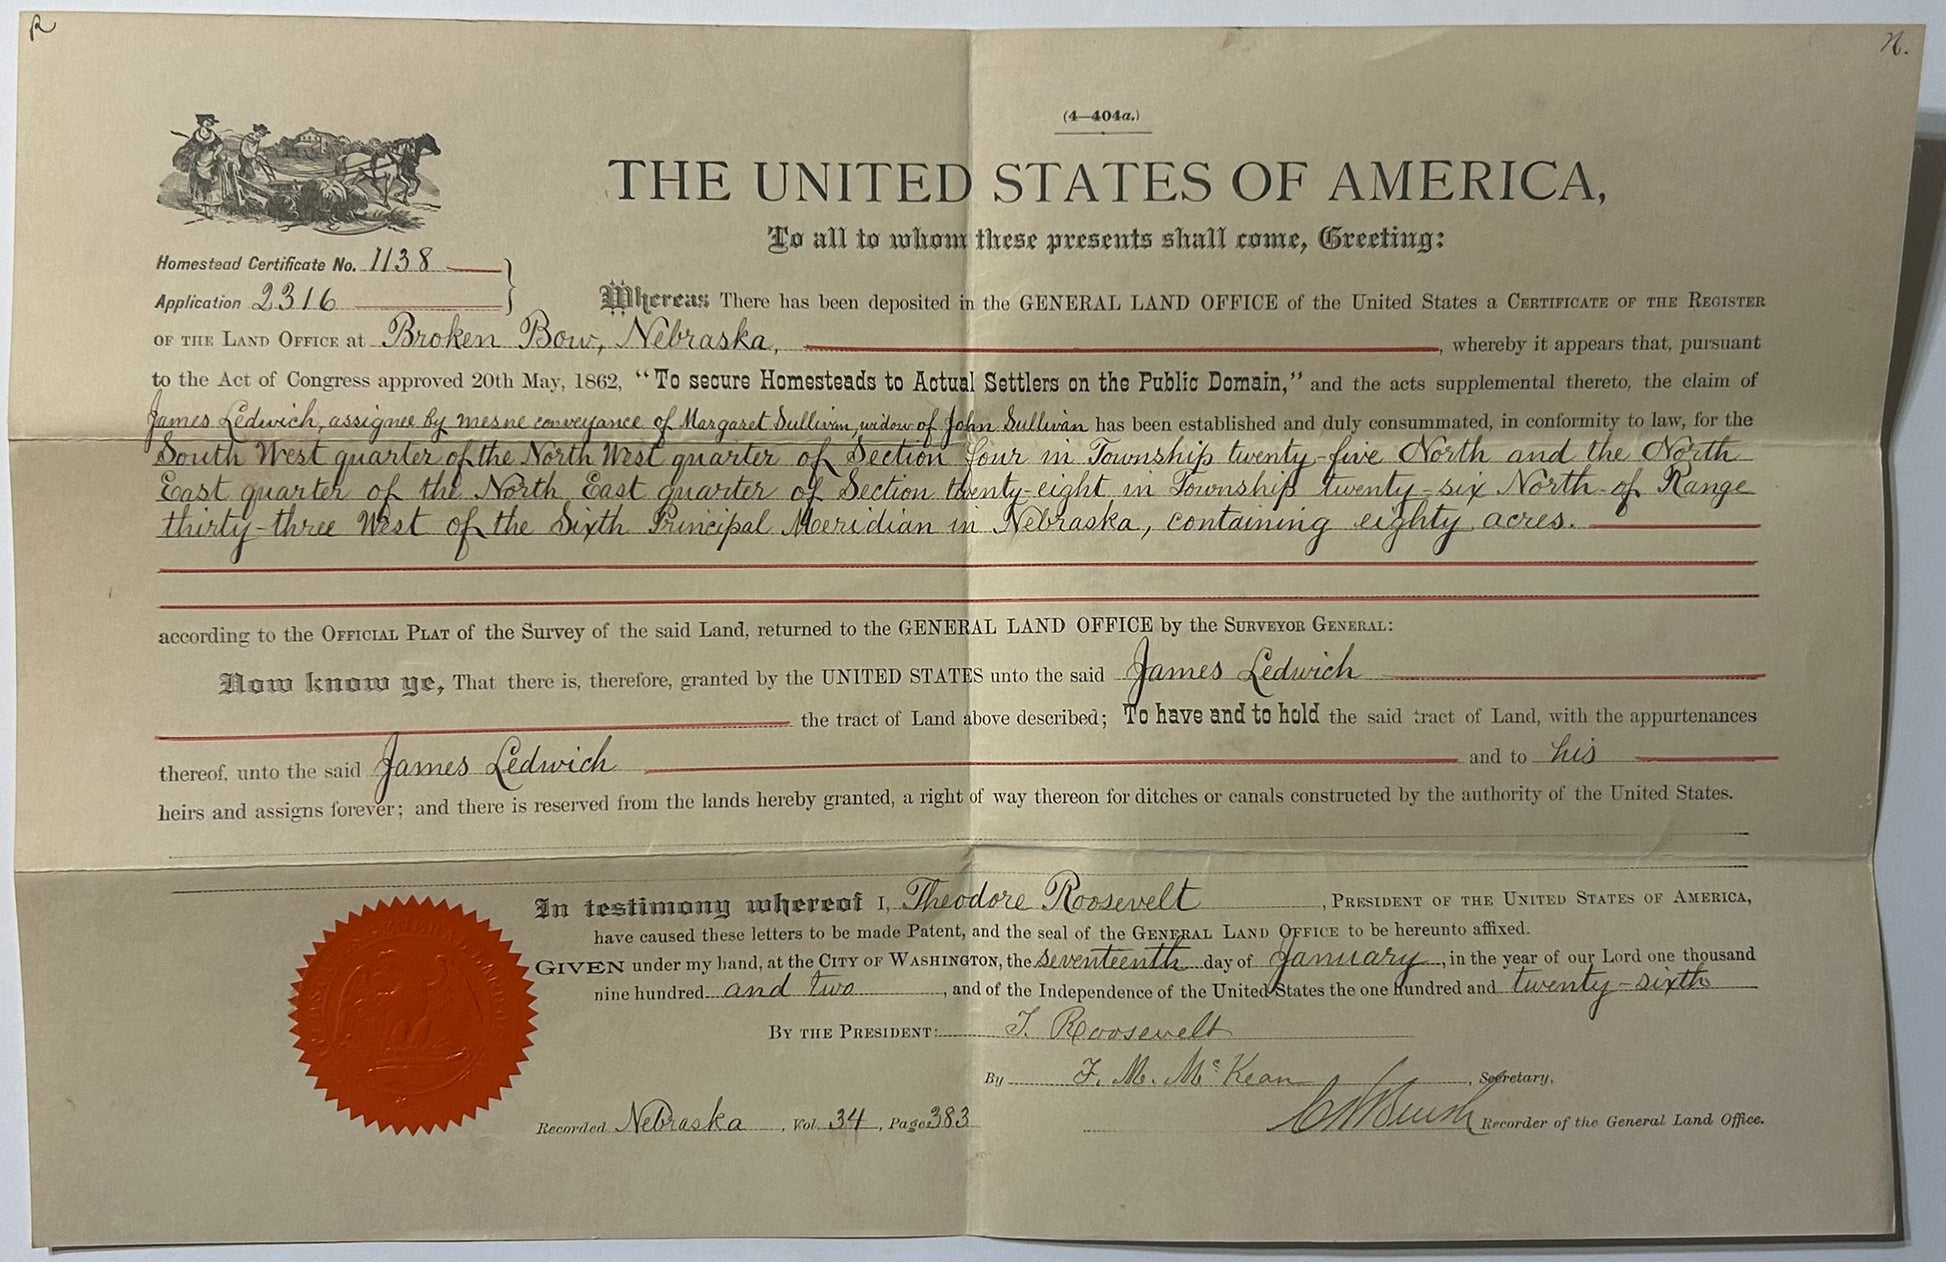 R
N.
(4—404a.)
THE UNITED STATES OF AMERICA,
To all to whom these presents shall come, Greeting:
Homestead Certificate No. 1138
Application 2316
Whereas There has been deposited in the GENERAL LAND OFFICE of the United States a CERTIFICATE OF THE REGISTER
OF THE LAND OFFICE at Broken Bow, Nebraska, , whereby it appears that, pursuant
to the Act of Congress approved 20th May, 1862, "To secure Homesteads to Actual Settlers on the Public Domain," and the acts supplemental thereto, the claim of
James Ledwich, assignee by mesne conveyance of Margaret Sullivan, widow of John Sullivan has been established and duly consummated, in conformity to law, for the
South West quarter of the North West quarter of Section four in Township twenty-five North and the North
East quarter of the North East quarter of Section twenty-eight in Township twenty-six North of Range
thirty-three West of the Sixth Principal Meridian in Nebraska, containing eighty acres.
according to the OFFICIAL PLAT of the Survey of the said Land, returned to the GENERAL LAND OFFICE by the SURVEYOR GENERAL:
Now know ye, That there is, therefore, granted by the UNITED STATES unto the said James Ledwich
the tract of Land above described; To have and to hold the said tract of Land, with the appurtenances
thereof, unto the said James Ledwich and to his
heirs and assigns forever; and there is reserved from the lands hereby granted, a right of way thereon for ditches or canals constructed by the authority of the United States.
In testimony whereof I, Theodore Roosevelt , PRESIDENT OF THE UNITED STATES OF AMERICA,
have caused these letters to be made Patent, and the seal of the GENERAL LAND OFFICE to be hereunto affixed.
GIVEN under my hand, at the CITY OF WASHINGTON, the seventeenth day of January , in the year of our Lord one thousand
nine hundred and two , and of the Independence of the United States the one hundred and twenty-sixth
BY THE PRESIDENT: T. Roosevelt
By F. M. McKean , Secretary.
Recorded Nebraska , Vol. 34 , Page 383
Recorder of the General Land Office.